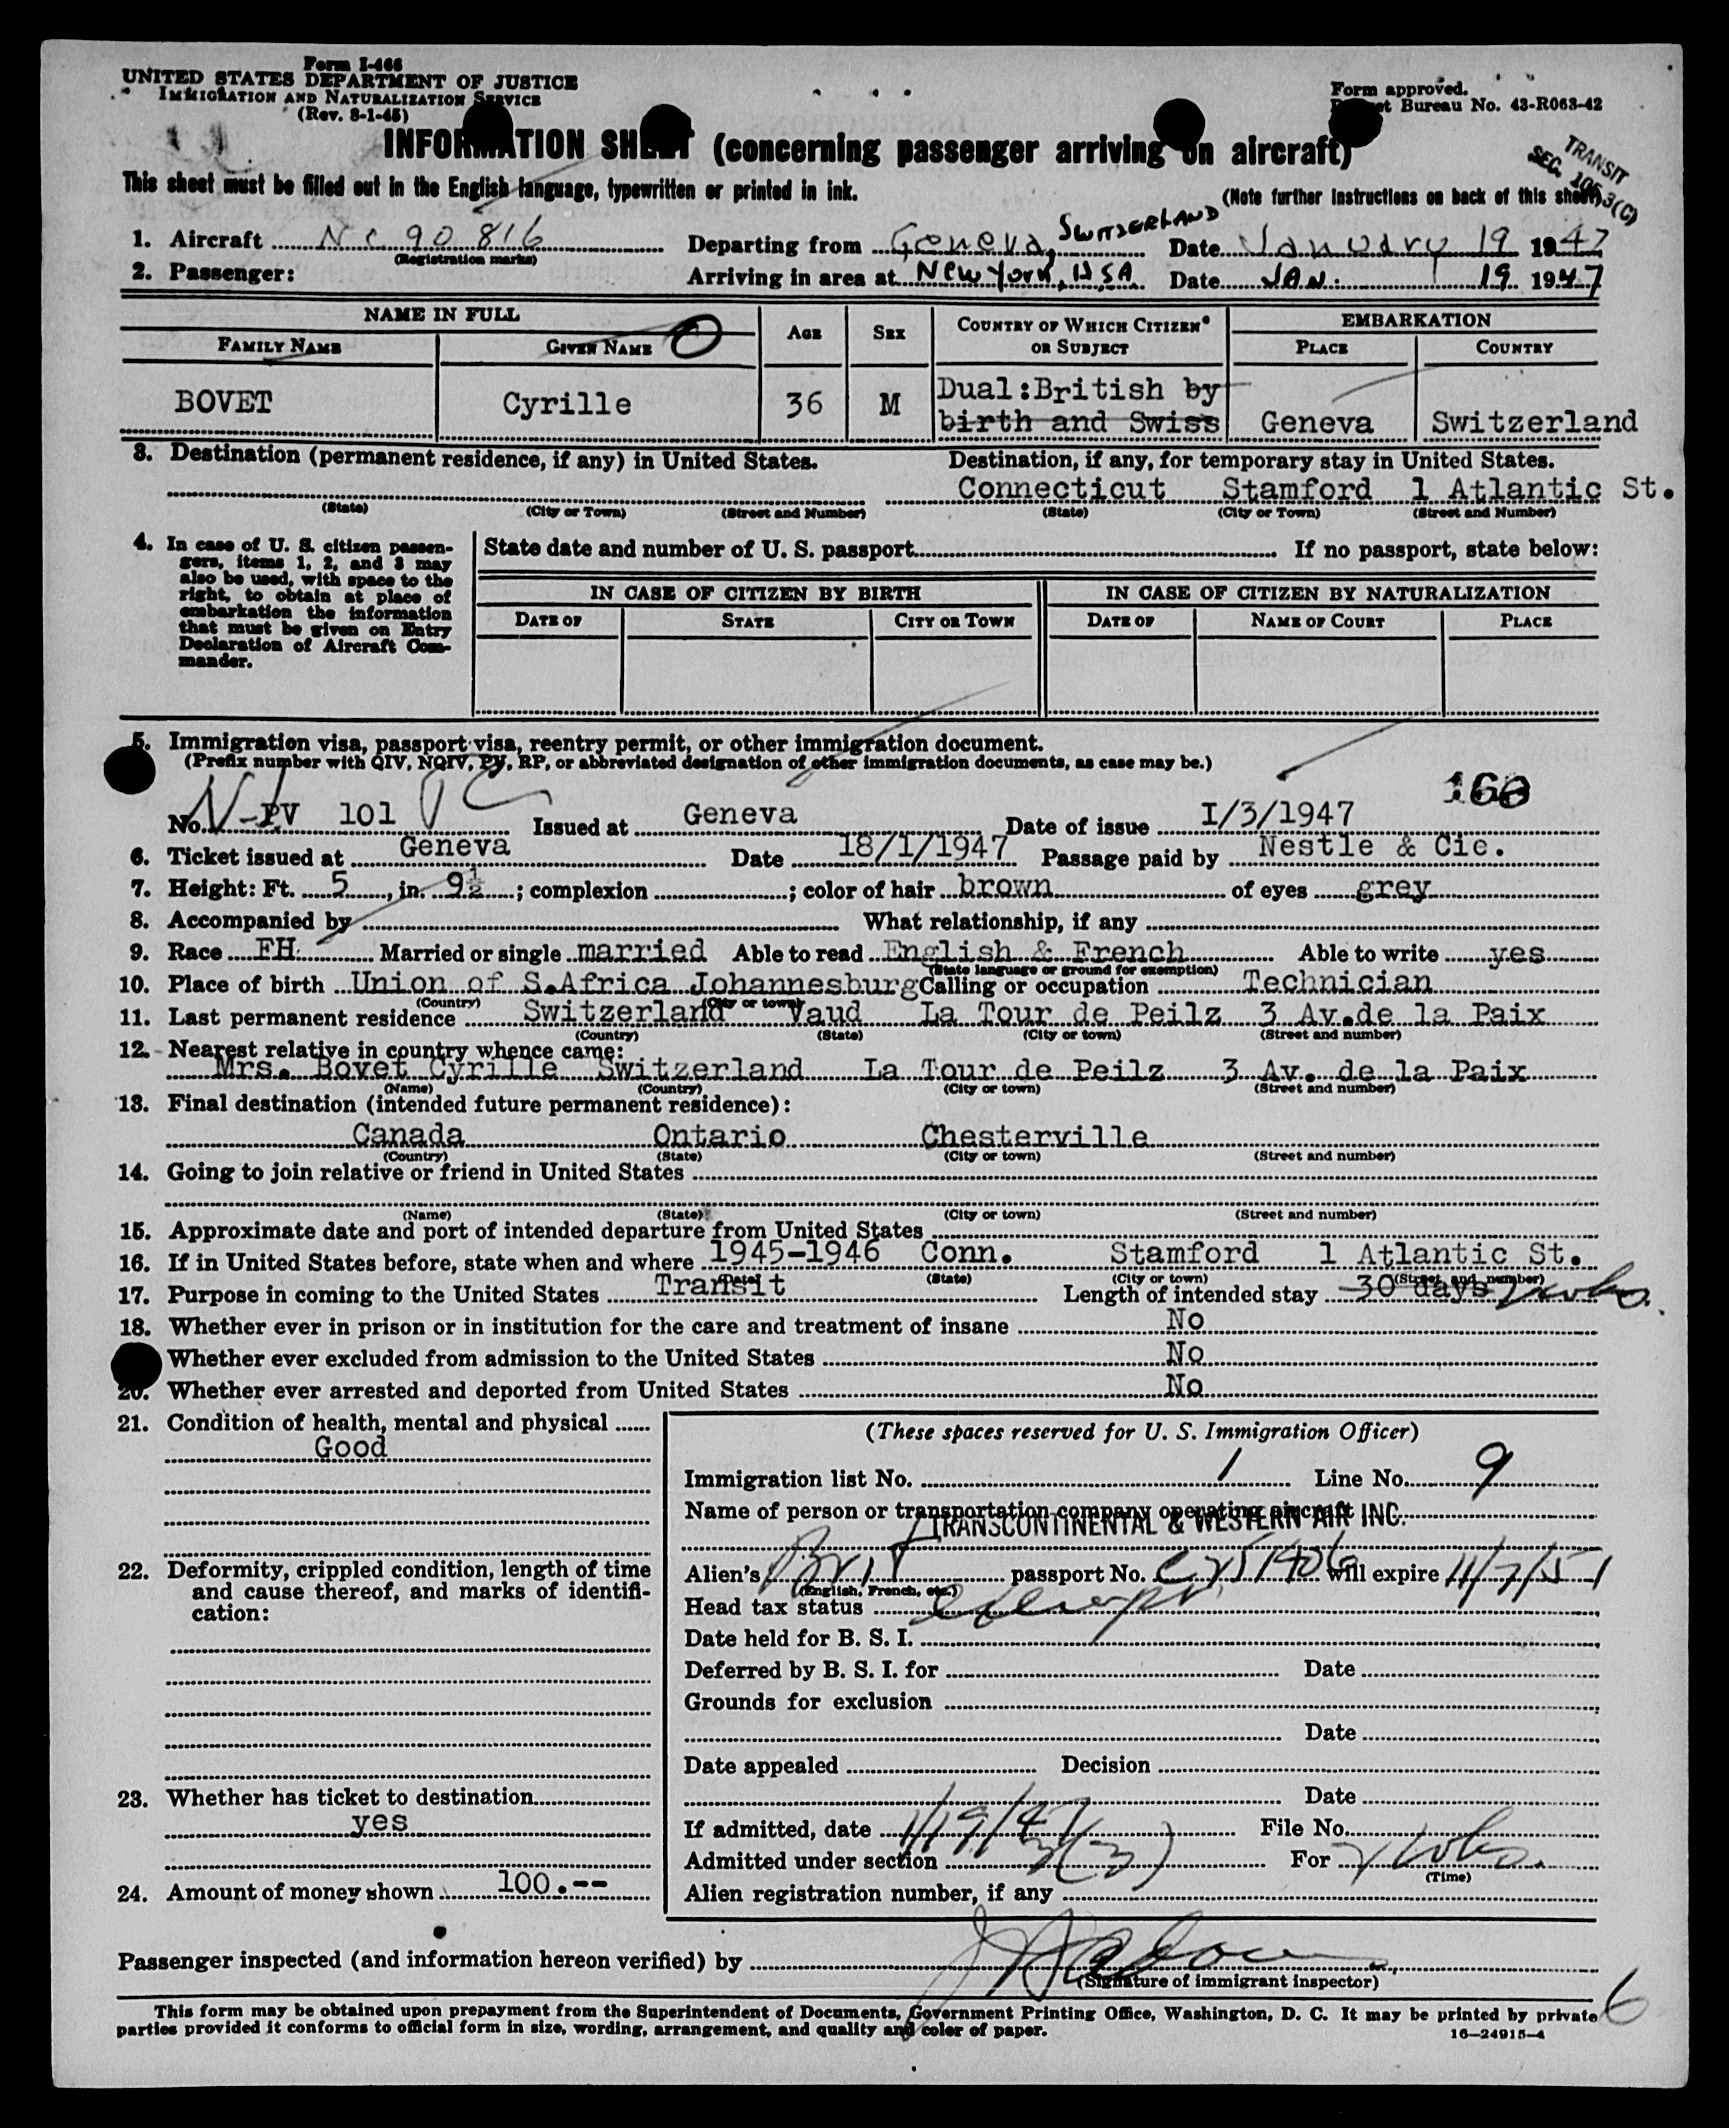 Form I-466
UNITED STATES DEPARTMENT OF JUSTICE
IMMIGRATION AND NATURALIZATION SERVICE
(Rev. 8-1-45)
Form approved.
Bureau No. 43-R063-42
INFORMATION SHEET (concerning passenger arriving on aircraft)
TRANSIT
SEC. 106.3(C)
This sheet must be filled out in the English language, typewritten or printed in ink.
(Note further instructions on back of this sheet)
1. Aircraft NC 90816 Departing from Geneva, SWITZERLAND Date January 19 1947
(Registration marks)
2. Passenger: Arriving in area at New York, USA Date JAN. 19 1947
NAME IN FULL AGE SEX COUNTRY OF WHICH CITIZEN OR SUBJECT EMBARKATION
FAMILY NAME GIVEN NAME PLACE COUNTRY
BOVET Cyrille 36 M Dual:British by birth and Swiss Geneva Switzerland
3. Destination (permanent residence, if any) in United States. Destination, if any, for temporary stay in United States.
Connecticut Stamford 1 Atlantic St.
(State) (City or Town) (Street and Number) (State) (City or Town) (Street and Number)
4. In case of U. S. citizen passen-
gers, items 1, 2, and 3 may
also be used, with space to the
right, to obtain at place of
embarkation the information
that must be given on Entry
Declaration of Aircraft Com-
mander.
State date and number of U. S. passport If no passport, state below:
IN CASE OF CITIZEN BY BIRTH IN CASE OF CITIZEN BY NATURALIZATION
DATE OF STATE CITY OR TOWN DATE OF NAME OF COURT PLACE
5. Immigration visa, passport visa, reentry permit, or other immigration document.
(Prefix number with QIV, NQIV, PV, RP, or abbreviated designation of other immigration documents, as case may be.)
160
No. PV 101 Issued at Geneva Date of issue I/3/1947
6. Ticket issued at Geneva Date 18/1/1947 Passage paid by Nestle & Cie.
7. Height: Ft. 5, in. 9½; complexion ; color of hair brown of eyes grey
8. Accompanied by What relationship, if any
9. Race FH. Married or single married Able to read English & French Able to write yes
(State language or ground for exemption)
10. Place of birth Union of S.Africa Johannesburg Calling or occupation Technician
(Country) (City or town)
11. Last permanent residence Switzerland Vaud La Tour de Peilz 3 Av.de la Paix
(Country) (State) (City or town) (Street and number)
12. Nearest relative in country whence came:
Mrs. Bovet Cyrille Switzerland La Tour de Peilz 3 Av. de la Paix
(Name) (Country) (City or town) (Street and number)
13. Final destination (intended future permanent residence):
Canada Ontario Chesterville
(Country) (State) (City or town) (Street and number)
14. Going to join relative or friend in United States
(Name) (State) (City or town) (Street and number)
15. Approximate date and port of intended departure from United States
16. If in United States before, state when and where 1945-1946 Conn. Stamford 1 Atlantic St.
(Date) (State) (City or town) (Street and number)
17. Purpose in coming to the United States Transit Length of intended stay 30 days
18. Whether ever in prison or in institution for the care and treatment of insane No
Whether ever excluded from admission to the United States No
20. Whether ever arrested and deported from United States No
21. Condition of health, mental and physical
Good
22. Deformity, crippled condition, length of time
and cause thereof, and marks of identifi-
cation:
23. Whether has ticket to destination
yes
24. Amount of money shown 100.--
(These spaces reserved for U. S. Immigration Officer)
Immigration list No. 1 Line No. 9
Name of person or transportation company operating aircraft
TRANSCONTINENTAL & WESTERN AIR INC.
Alien's Brit passport No. will expire 11/7/51
(English, French, etc.)
Head tax status exempt
Date held for B. S. I.
Deferred by B. S. I. for Date
Grounds for exclusion
Date
Date appealed Decision
Date
If admitted, date 1/19/47 File No.
Admitted under section 3(3) For
(Time)
Alien registration number, if any
Passenger inspected (and information hereon verified) by
(Signature of immigrant inspector)
6
This form may be obtained upon prepayment from the Superintendent of Documents, Government Printing Office, Washington, D. C. It may be printed by private
parties provided it conforms to official form in size, wording, arrangement, and quality and color of paper.
16—24915-4